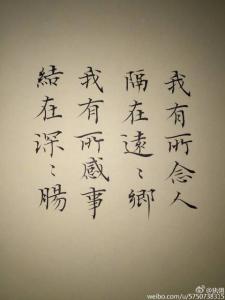 我有所念人
隔在遠〻鄉
我有所感事
結在深〻腸
weibo.com/u/5750738315